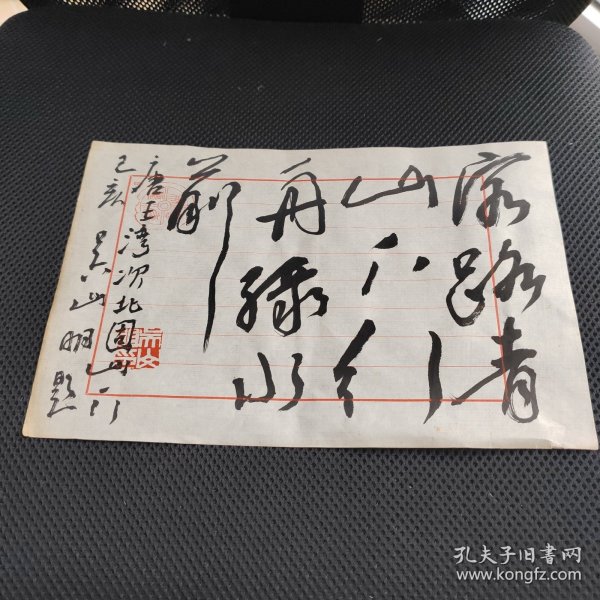 客路青
山下行
舟绿水
前
唐王湾次北固山下
己亥 吴山明 题
孔夫子旧书网
www.kongfz.com